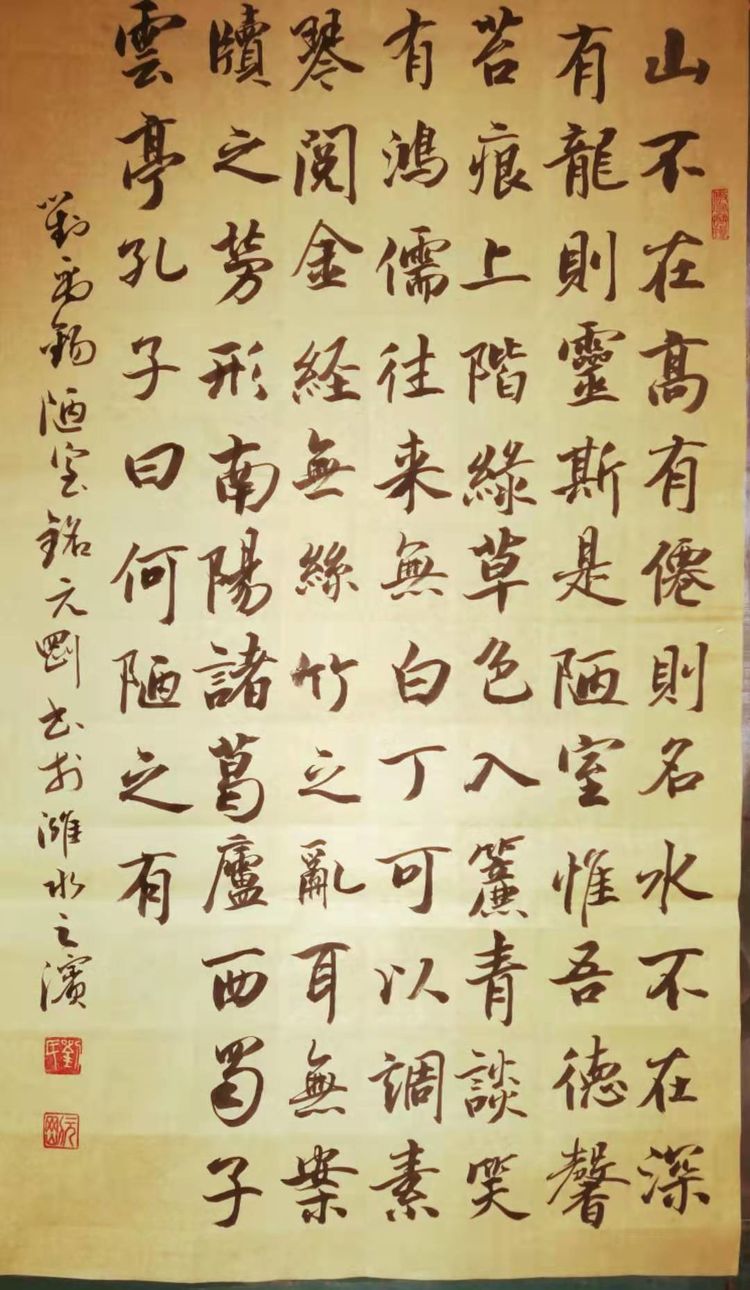 山不在高有僊則名水不在深
有龍則靈斯是陋室惟吾德馨
苔痕上階綠草色入簾青談笑
有鴻儒往来無白丁可以調素
琴閱金経無絲竹之亂耳無案
牘之勞形南陽諸葛廬西蜀子
雲亭孔子曰何陋之有
劉禹錫陋室銘元剛書於濰水之濱